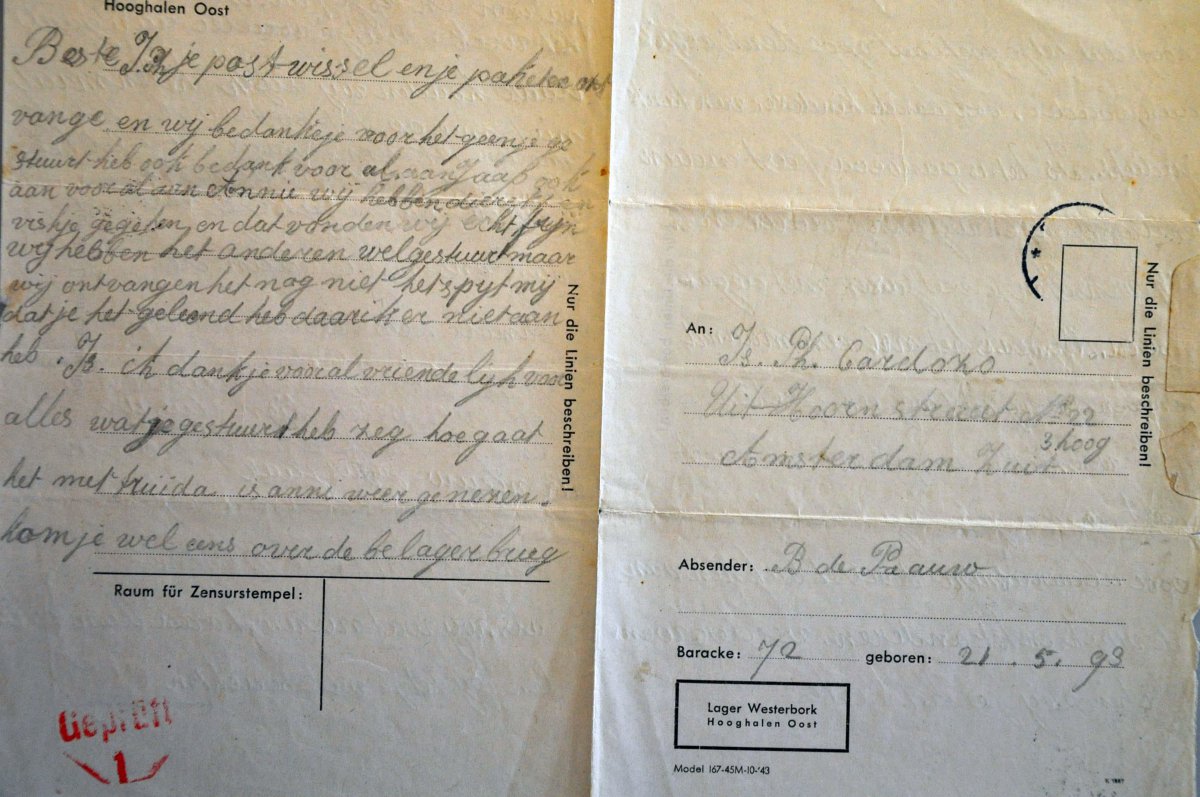 Hooghalen Oost
Beste Is. je postwissel en je paketen ont
vange en wij bedanke je voor het geen je ge
stuurt heb ook bedank voor al aan Jaap ook
aan vooral aan Annie wij hebben die en
viskje gegeten en dat vonden wij echt fijn
wij hebben het anderen wel gestuurt maar
wij ontvangen het nog niet het spijt mij
dat je het geleend heb daar ik er niet aan
heb. Is. ik dank je vooral vriendelijk voor
alles wat je gestuurt heb zeg hoe gaat
het met truida is anni weer genezen.
kom je wel eens over de belager brug
Nur die Linien beschreiben!
Raum für Zensurstempel:
Geprüft
1
An: Is. Ph. Cardozo
Uit Hoorn straat No 22
3 hoog
Amsterdam Zuit
Nur die Linien beschreiben!
Absender: B de Paauw
Baracke: 72 geboren: 21. 5. 93
Lager Westerbork
Hooghalen Oost
Model 167-45M-10-'43